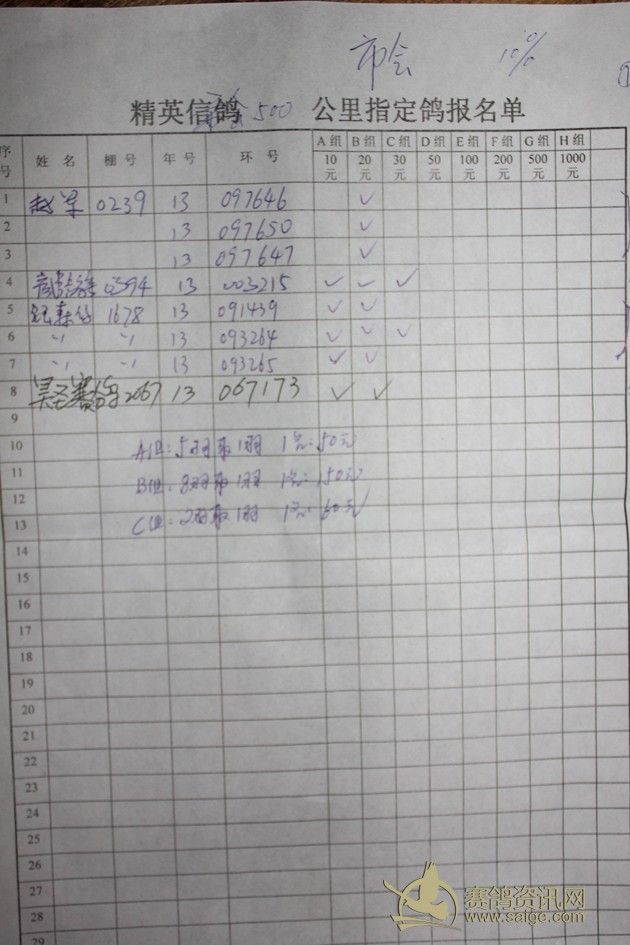 市会 10%
精英信鸽 500 公里指定鸽报名单
序号 姓名 棚号 年号 环号 A组 B组 C组 D组 E组 F组 G组 H组
10元 20元 30元 50元 100元 200元 500元 1000元
1 赵军 0239 13 097646 ✓
2 13 097650 ✓
3 13 097647 ✓
4 0594 13 003215 ✓ ✓ ✓
5 1678 13 091439 ✓ ✓
6 〃 〃 13 093264 ✓ ✓ ✓
7 〃 〃 13 093265 ✓ ✓
8 昊圣赛鸽 2067 13 067173 ✓ ✓
9
10 A组:5羽取1羽 1名:50元
11 B组:8羽取1羽 1名:150元
12
13 C组:2羽取1羽 1名:60元
14
15
16
17
18
19
20
21
22
23
24
25
26
27
28
29
赛鸽资讯网
www.saige.com